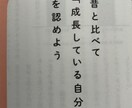 昔と比べて
「成長している自分」
を認めよう